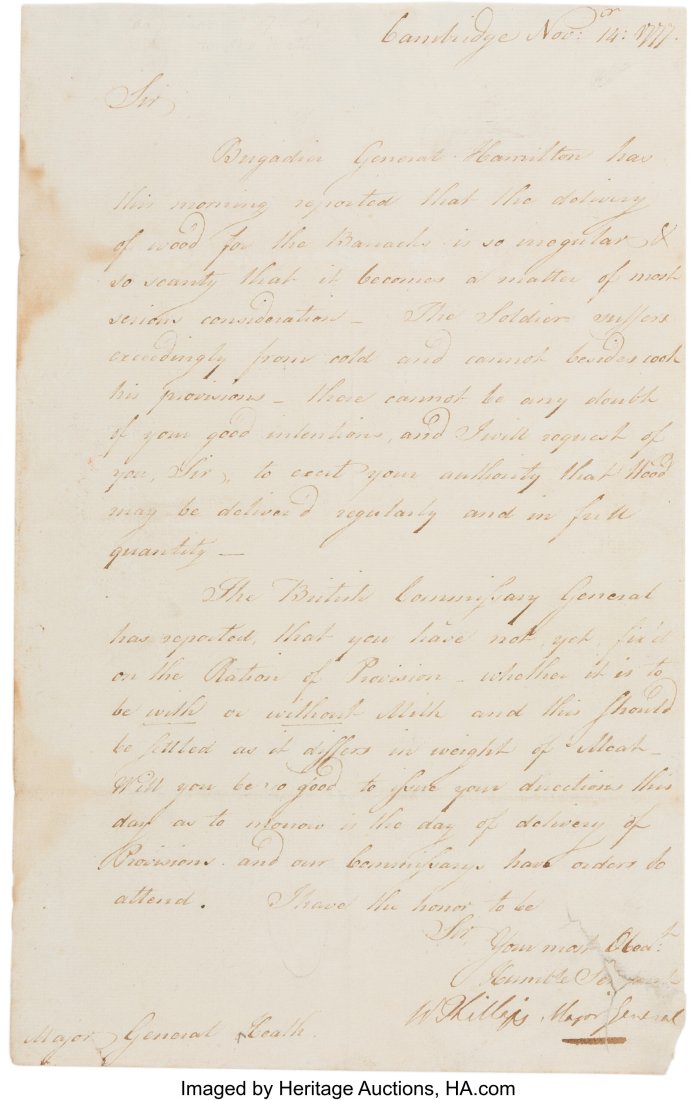 Cambridge Nov:er 14: 1777.
Sir,
Brigadier General Hamilton has
this morning reported that the delivery
of wood for the Barracks is so irregular &
so scanty that it becomes a matter of most
serious consideration – The Soldier suffers
exceedingly from cold and cannot besides cook
his provisions – there cannot be any doubt
of your good intentions, and I will request of
you, Sir, to exert your authority that Wood
may be deliver'd regularly and in full
quantity —
The British Commissary General
has reported, that you have not yet fix'd
on the Ration of Provision – whether it is to
be with or without Milk and this should
be settled as it differs in weight of Meat –
Will you be so good to issue your directions this
day as to morrow is the day of delivery of
Provisions and our Commissarys have orders to
attend. I have the honor to be
Sir
Your most Obed:t
Humble Servant
W Phillips Major General
Major General Heath.
Imaged by Heritage Auctions, HA.com